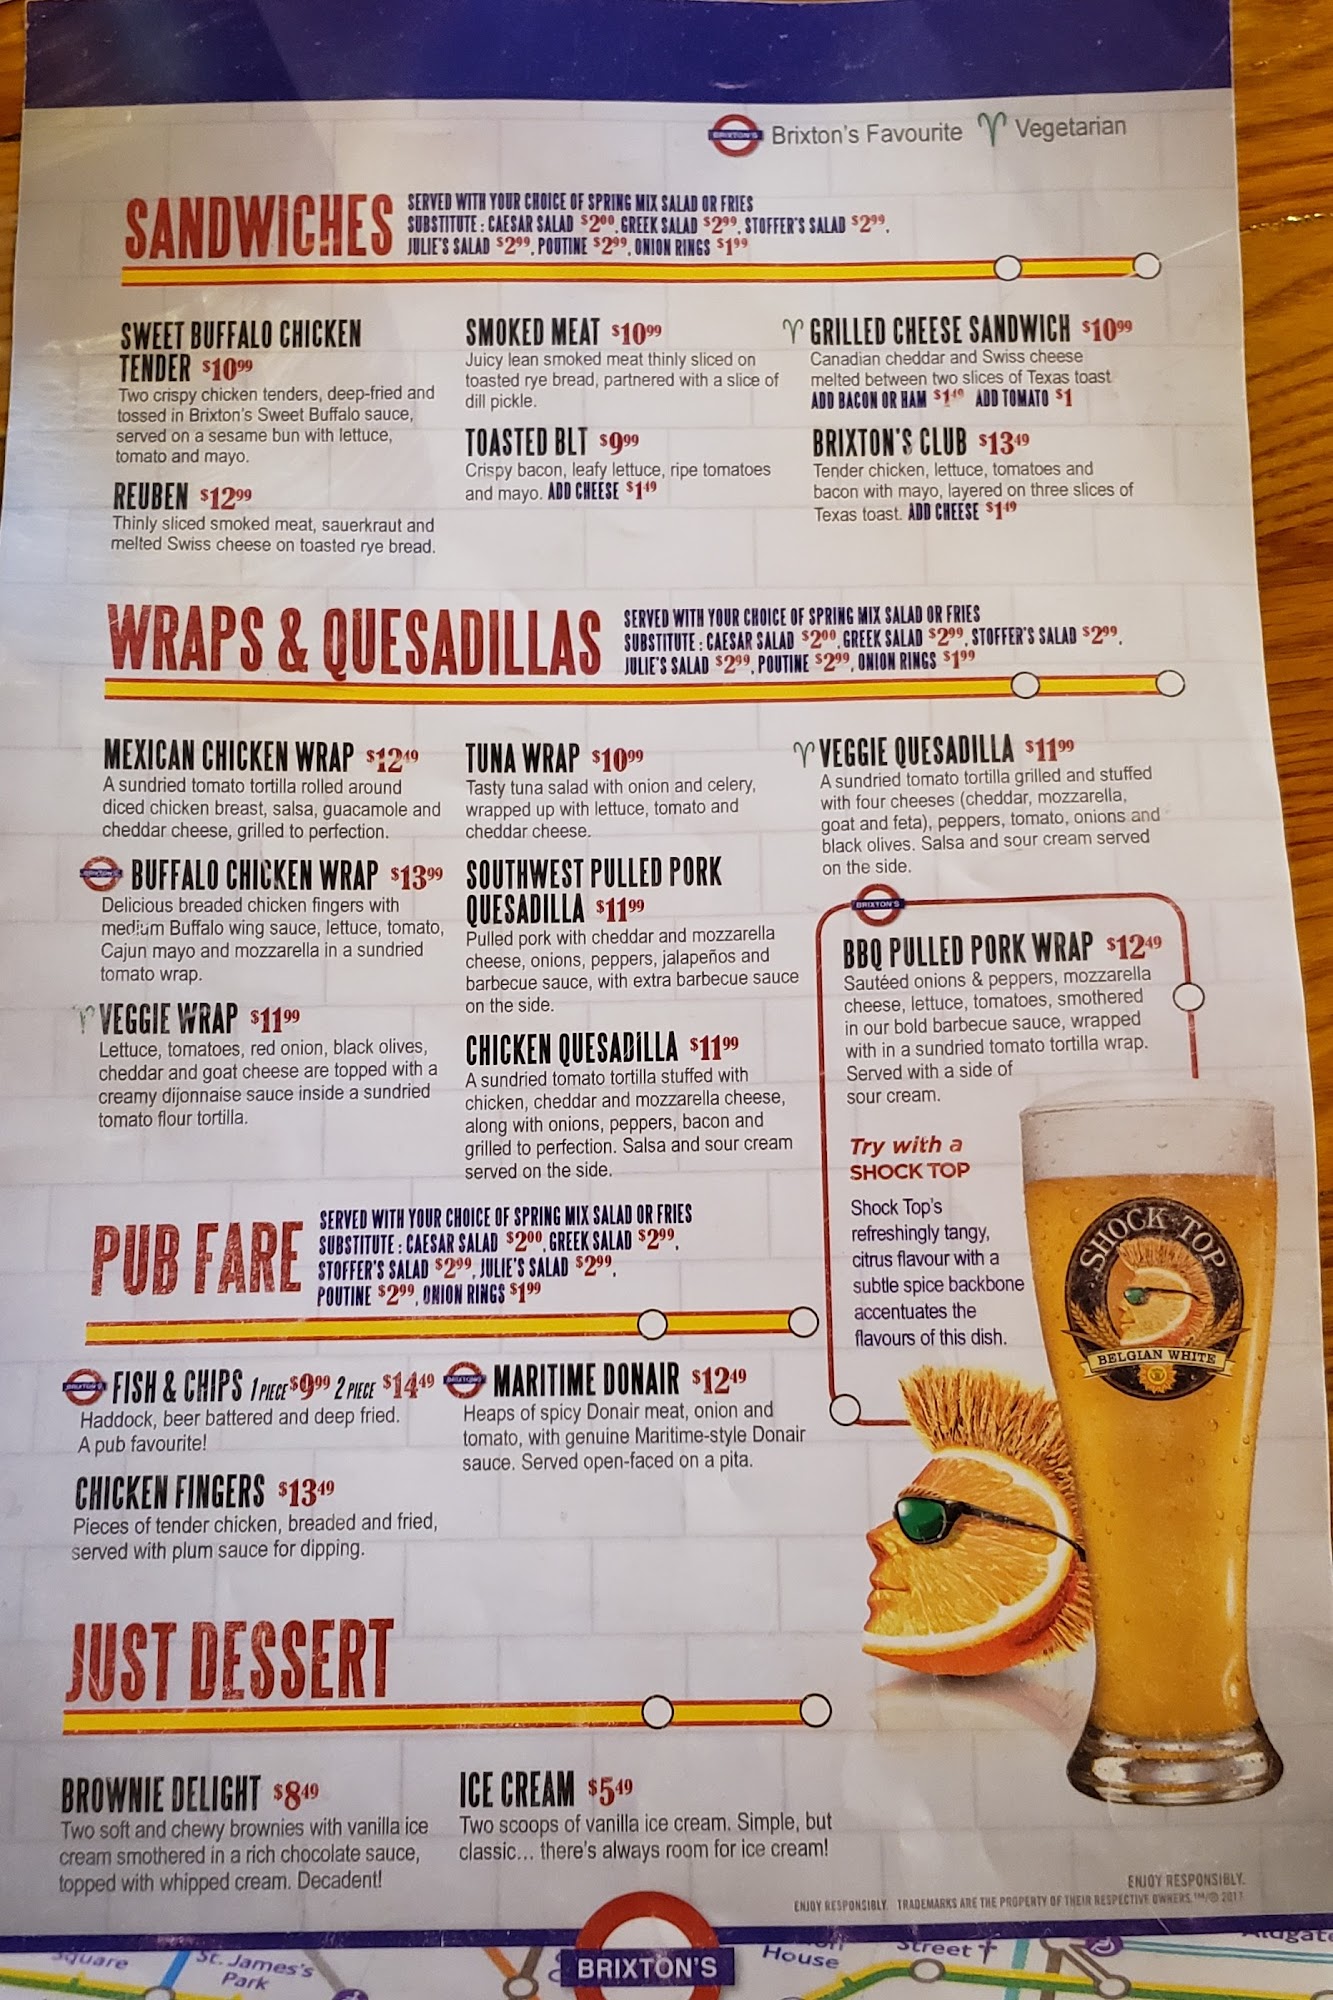 BRIXTON'S Brixton's Favourite Vegetarian
SANDWICHES
SERVED WITH YOUR CHOICE OF SPRING MIX SALAD OR FRIES
SUBSTITUTE : CAESAR SALAD $2.00, GREEK SALAD $2.99, STOFFER'S SALAD $2.99,
JULIE'S SALAD $2.99, POUTINE $2.99, ONION RINGS $1.99
SWEET BUFFALO CHICKEN
TENDER $10.99
Two crispy chicken tenders, deep-fried and
tossed in Brixton's Sweet Buffalo sauce,
served on a sesame bun with lettuce,
tomato and mayo.
REUBEN $12.99
Thinly sliced smoked meat, sauerkraut and
melted Swiss cheese on toasted rye bread.
SMOKED MEAT $10.99
Juicy lean smoked meat thinly sliced on
toasted rye bread, partnered with a slice of
dill pickle.
TOASTED BLT $9.99
Crispy bacon, leafy lettuce, ripe tomatoes
and mayo. ADD CHEESE $1.49
GRILLED CHEESE SANDWICH $10.99
Canadian cheddar and Swiss cheese
melted between two slices of Texas toast
ADD BACON OR HAM $1.49 ADD TOMATO $1
BRIXTON'S CLUB $13.49
Tender chicken, lettuce, tomatoes and
bacon with mayo, layered on three slices of
Texas toast. ADD CHEESE $1.49
WRAPS & QUESADILLAS
SERVED WITH YOUR CHOICE OF SPRING MIX SALAD OR FRIES
SUBSTITUTE : CAESAR SALAD $2.00, GREEK SALAD $2.99, STOFFER'S SALAD $2.99,
JULIE'S SALAD $2.99, POUTINE $2.99, ONION RINGS $1.99
MEXICAN CHICKEN WRAP $12.49
A sundried tomato tortilla rolled around
diced chicken breast, salsa, guacamole and
cheddar cheese, grilled to perfection.
BUFFALO CHICKEN WRAP $13.99
Delicious breaded chicken fingers with
medium Buffalo wing sauce, lettuce, tomato,
Cajun mayo and mozzarella in a sundried
tomato wrap.
VEGGIE WRAP $11.99
Lettuce, tomatoes, red onion, black olives,
cheddar and goat cheese are topped with a
creamy dijonnaise sauce inside a sundried
tomato flour tortilla.
TUNA WRAP $10.99
Tasty tuna salad with onion and celery,
wrapped up with lettuce, tomato and
cheddar cheese.
SOUTHWEST PULLED PORK
QUESADILLA $11.99
Pulled pork with cheddar and mozzarella
cheese, onions, peppers, jalapeños and
barbecue sauce, with extra barbecue sauce
on the side.
CHICKEN QUESADILLA $11.99
A sundried tomato tortilla stuffed with
chicken, cheddar and mozzarella cheese,
along with onions, peppers, bacon and
grilled to perfection. Salsa and sour cream
served on the side.
VEGGIE QUESADILLA $11.99
A sundried tomato tortilla grilled and stuffed
with four cheeses (cheddar, mozzarella,
goat and feta), peppers, tomato, onions and
black olives. Salsa and sour cream served
on the side.
BRIXTON'S
BBQ PULLED PORK WRAP $12.49
Sautéed onions & peppers, mozzarella
cheese, lettuce, tomatoes, smothered
in our bold barbecue sauce, wrapped
with in a sundried tomato tortilla wrap.
Served with a side of
sour cream.
Try with a
SHOCK TOP
Shock Top's
refreshingly tangy,
citrus flavour with a
subtle spice backbone
accentuates the
flavours of this dish.
SHOCK TOP
BELGIAN WHITE
PUB FARE
SERVED WITH YOUR CHOICE OF SPRING MIX SALAD OR FRIES
SUBSTITUTE : CAESAR SALAD $2.00, GREEK SALAD $2.99,
STOFFER'S SALAD $2.99, JULIE'S SALAD $2.99,
POUTINE $2.99, ONION RINGS $1.99
FISH & CHIPS 1 PIECE $9.99 2 PIECE $14.49
Haddock, beer battered and deep fried.
A pub favourite!
CHICKEN FINGERS $13.49
Pieces of tender chicken, breaded and fried,
served with plum sauce for dipping.
MARITIME DONAIR $12.49
Heaps of spicy Donair meat, onion and
tomato, with genuine Maritime-style Donair
sauce. Served open-faced on a pita.
JUST DESSERT
BROWNIE DELIGHT $8.49
Two soft and chewy brownies with vanilla ice
cream smothered in a rich chocolate sauce,
topped with whipped cream. Decadent!
ICE CREAM $5.49
Two scoops of vanilla ice cream. Simple, but
classic... there's always room for ice cream!
ENJOY RESPONSIBLY.
ENJOY RESPONSIBLY. TRADEMARKS ARE THE PROPERTY OF THEIR RESPECTIVE OWNERS.™/®
Square
St. James's
Park
BRIXTON'S
House
Street